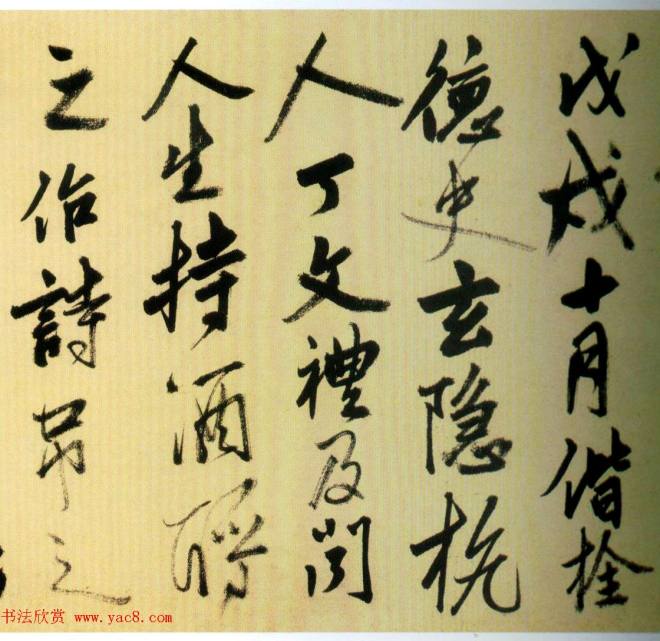 戊戌十月偕栓
德史玄隐杭
人丁文禮及閒
人生持酒酹
之作詩弔之
书法欣赏 www.yac8.com